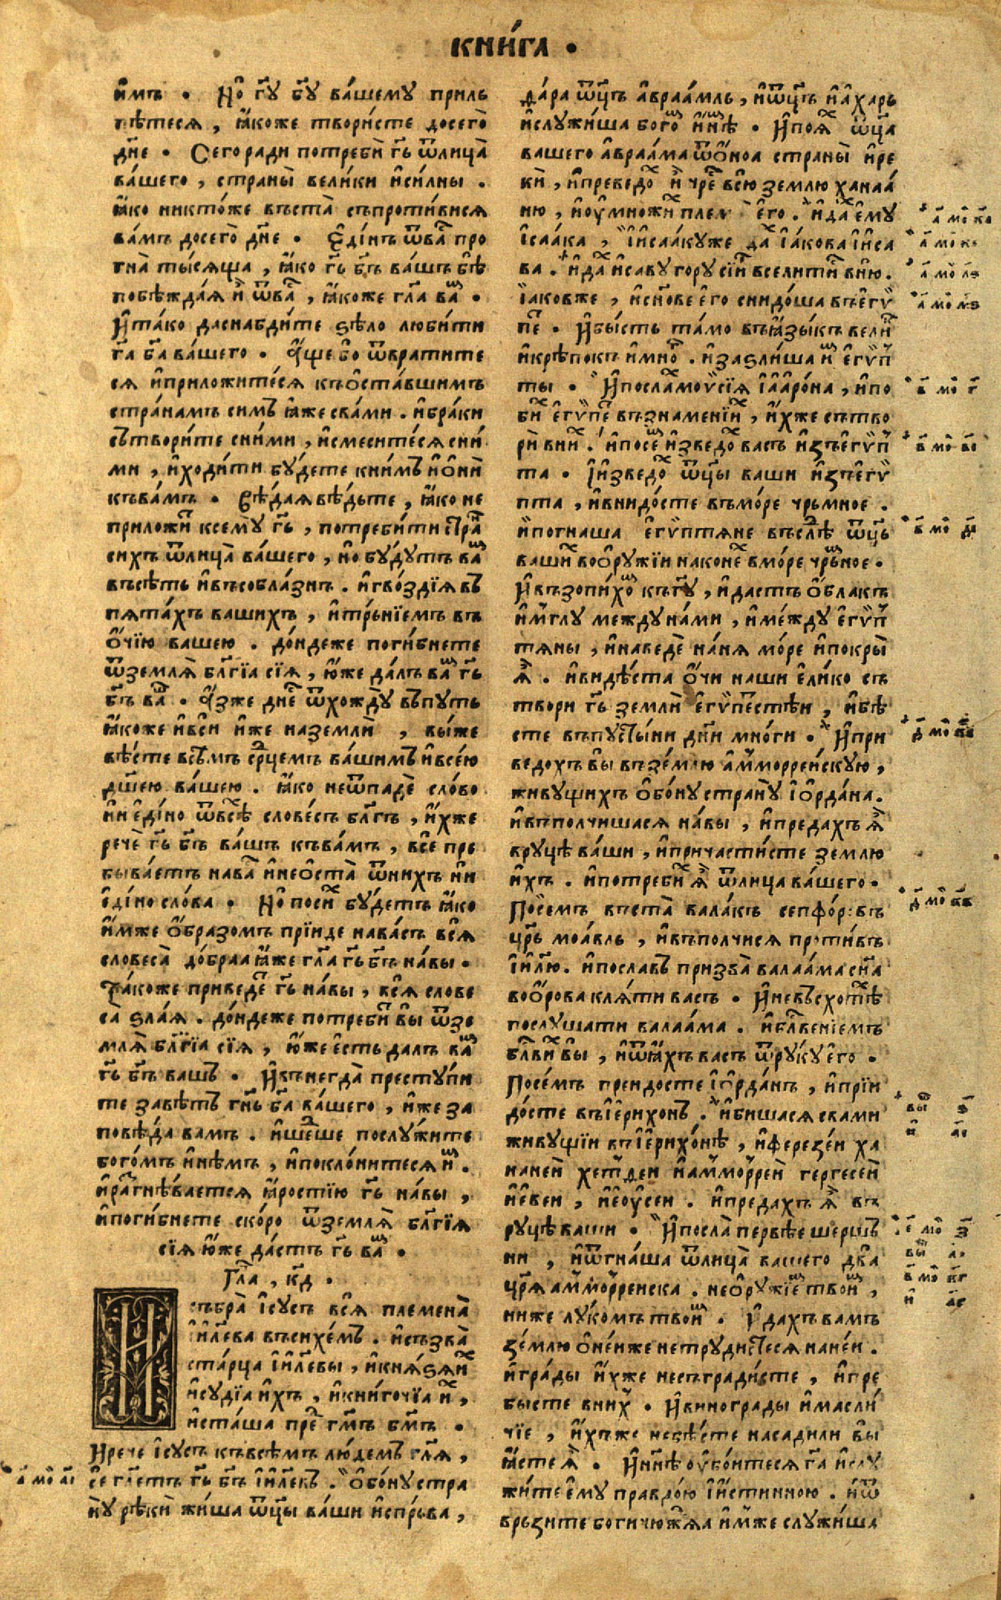 КНИ́ГА ·
и҆́мъ · Но̀ гу҃ бг҃у ва́шему приль
пѣ́теся , ꙗ҆́коже твори́сте досего̀
дн҃е · Сего ради потребѝ гь҃ ѿлица̀
ва́шего , страны̀ вели́ки и҆си́лны .
ꙗ҆́ко никто́же въста̀ съпроти́вися
ва́мъ досего̀ дн҃е · Е҆ди́нъ ѿва́с про
гна̀ ты́сяща , ꙗ҆́ко гь҃ бг҃ъ ва́шъ бѣ̀
побѣжда́я и҆ ѿва́с , ꙗ҆́коже гл҃а ва́м ·
И҆та́ко даснабди́те ѕѣло люби́ти
га҃ ба҃ ва́шего · А҆́ще бо ѿврати́те
ся и҆приложите́ся къо҆ста́вшимъ
стра́намъ симъ ꙗ҆́же сва́ми . и҆бра́ки
сътвори́те сни́ми , и҆смесите́ся сни́
ми , и҆ходи́ти бу́дете кни́мъ и҆ѻ҆нѝ
къва́мъ · Вѣ́дая вѣ́дьте , ꙗ҆́ко не
приложи́т ксему̀ гь҃ , потреби́ти стра́н
си́хъ ѿлица̀ ва́шего , но̀ бу́дутъ ва́м
въсѣть и҆въсобла́знъ . и҆гво́здїя въ
пята́хъ вашихъ , и҆тръ́нїемъ въ
ѻ҆чїю вашею . до́ндеже поги́бнете
ѿземля̀ бл҃гїа сїя , ю҆́же да́лъ ва́м гь҃
бг҃ъ ва́ш · А҆́зже дне́с ѿхожду̀ въпуть
ꙗ҆́коже и҆всѝ и҆́же наземлѝ , вы́же
вѣ́сте всѣ́мъ срд҃цемъ ва́шимъ и҆все́ю
дш҃ею ва́шею . ꙗ҆́ко неѿпадѐ сло́во
ни е҆ди́но ѿвсѣ́х слове́съ бл҃гъ , и҆́хже
речѐ гь҃ бг҃ъ ва́шъ къва́мъ , всѐ пре
быва́етъ нава́с и҆неѡ҆ста̀ ѿни́хъ ни
е҆ди́но сло́ва · Но̀ поси́х бу́детъ ꙗ҆́ко
и҆́мже ѻ҆́бразомъ прїи́де нава́съ вся̀
словеса̀ до́браа ꙗ҆́же гл҃а гь҃ бг҃ъ на́вы ·
Та́коже приведе́т гь҃ на́вы , вся̀ слове
са̀ ѕла́я . до́ндеже потреби́т вы ѿзе
мля̀ бл҃гїа сїя , ю҆́же е҆сть далъ ва́м
гь҃ бг҃ъ вашъ · И҆внегда̀ преступи
те завѣ́тъ гн҃ь ба҃ ва́шего , и҆́же за
повѣ́да вамъ . и҆ше́дше послу́жите
бого́мъ и҆нѣ́мъ , и҆покло́нитеся и҆́м .
и҆разгнѣ́вается ꙗ҆́ростїю гь҃ на́вы ,
и҆поги́бнете ско́ро ѿземля̀ бл҃гїя
сїя ю҆́же да́стъ гь҃ ва́м ·
Гла҃ , к҃д ·
И
събра̀ і҆су́съ вся̀ племена̀
і҆и҃лева въсихе́мъ . и҆съзва̀
ста́рца і҆и҃левы , и҆кня́ѕя и҆́х
и҆судїа и҆́хъ , и҆кни́гочїа и҆́х ,
и҆ста́ша пре́д гм҃ъ бм҃ъ ·
И҆рече і҆су́съ къвсѣ́мъ лю́демъ гл҃я ,
сѐ гл҃етъ гь҃ бг҃ъ і҆и҃левъ . Ѻ҆бо́ну стра
ну̀ рѣ́кѝ жи́ша ѿц҃ы ва́ши и҆спръ́ва ,
а҃ мо́и а҃і
да́ра ѿц҃ъ а҆враа́мль , и҆ѿц҃ъ и҆а҆ха́рь
и҆служи́ша бого́м и҆нѣ́м · И҆поя́х ѿц҃а
вашего а҆враа́ма ѿѻ҆ноа страны̀ и҆ре
кѝ , и҆преведо́х и҆̀ чре́с всю̀ землю ханаа́
ню , и҆оу҆множи́х племѧ е҆го̀ . и҆да́х е҆му
і҆саа́ка , И҆і҆саа́куже да́х і҆а́кова и҆и҆са
ва . и҆да́х и҆сав̀у гору сїи́р вселити́с в ню̀ .
І҆а́ковже , и҆сн҃ове е҆го̀ снидо́ша въе҆гѵ́
пе́т · И҆бы́сть та́мо въꙗ҆зы́къ вели́к
и҆крѣ́покъ и҆мно́г . и҆заѕли́ша и҆́м е҆гѵ́п
ты · И҆посла́х моѵ҆сі́я и҆а҆а҆ро́на , и҆по
би́х е҆гѵ́пет възна́менїих , и҆́хже сътво
ри̇̀ вни́х . И҆посе́м и҆зведо́х васъ и҆зъе҆гѵ́п
та · И҆и҆зведо́х ѿц҃ы ваши и҆зъе҆гѵ́
пта , и҆внидо́сте въмо́ре чрьмное .
И҆погнаша е҆гѵ́птяне въслѣ́д ѿц҃ь
ваши́х воѻ҆ру́жїи на коне́х вмо́ре чрьмное ·
И҆възопи́хом къгу҃ , и҆дастъ ѻ҆блакъ
и҆мглу̀ между на́ми , и҆ме́жду е҆гѵ́п
тяны , и҆наведѐ на́ня мо́ре и҆покры̀
я҆̀ . и҆ви́дѣста ѻ҆́чи наши е҆ли́ко съ
твори гь҃ землѝ е҆гѵ́пестѣи , и҆бѣ́
сте въпусты́ни дн҃и мно́ги · И҆при
ведохъ вы възе́млю а҆ммо́ррейскую ,
живущихъ ѻ҆бо́ну страну̀ і҆ѻ҆рда́на .
и҆въполчишася на́вы , и҆предахъ я҆̀
вруцѣ ва́ши , и҆прича́сти́сте землю
и҆́хъ . и҆потреби́х я҆̀ ѿлица ва́шего ·
По́семъ въста̀ вала́къ сепфо́ровъ
ц҃рь моа́вль , и҆въполчися проти́въ
і҆и҃лю . и҆посла́въ призва̀ валаа́ма сн҃а
воѻ҆́рова кля́ти васъ · И҆невъсхотѣ́х
послу́шати валаа́ма . и҆бл҃веніемъ
бл҃ви́х вы , и҆ѿꙗ҆́хъ васъ ѿру́ку е҆го̀ ·
По́семъ преидосте і҆ѻ҆рда́нъ , и҆прїи
до́сте въі҆ерихо́нъ . и҆бишася свами
живущїи въі҆ерихо́нѣ , и҆ферезе́и ха
наней хетфеи и҆а҆ммо́ррей гергесей
и҆е҆веи , и҆е҆оу҆сеи . и҆предахъ я҆̀ въ
руцѣ ва́ши · И҆посла̀ первѣе шершь
ни , и҆ѿгна́ша ѿлица̀ вашего два̀
ц҃ря а҆ммо́рренска . не ѻ҆ру́жїем твои́м ,
ниже лу́комъ твои́м · И҆ дахъ вамъ
зе́млю ѻ҆не́йже нетруди́стеся на не́и .
и҆гра́ды и҆́хже несъгради́сте , и҆пре
бысте вни́х · И҆винограды и҆масли́
чїе , и҆́хъже невѣ́сте насадили вы
ꙗ҆́сте я҆̀ · И҆нн҃ѣ оу҆бо́итеся га҃ и҆слу
жи́те е҆му правдо́ю і҆и҆́стинною . и҆ѿ
връзите боги чюжа́я и҆́мже служи́ша
а҃ мо́и к҃а
а҃ мо́и
а҃ мо́и л҃ѕ
а҃ мо́и л҃ѕ
в҃ мо́и г҃
в҃ мо́и в҃і
в҃ мо́и д҃і
д҃ мо́и к҃в
д҃ мо́и к҃в
вы́ш ѕ҃
и҃ а҃і
е҃ мо́и з҃
вы́ш а҃
в҃ мо́и к҃г
и҃